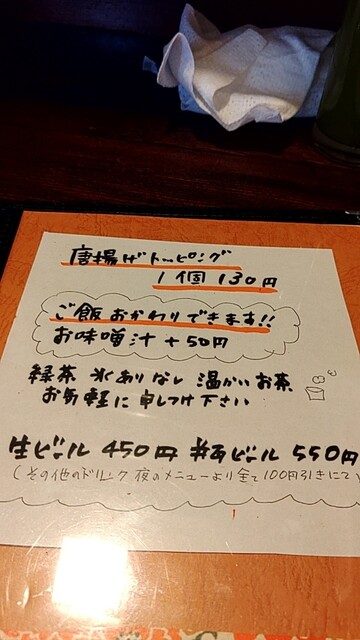 唐揚げトッピング
1個 130円
ご飯おかわりできます!!
お味噌汁 +50円
緑茶 氷ありなし 温かいお茶
お気軽に申しつけ下さい
生ビール 450円 瓶ビール 550円
(その他のドリンク 夜のメニューより全て100円引きにて)